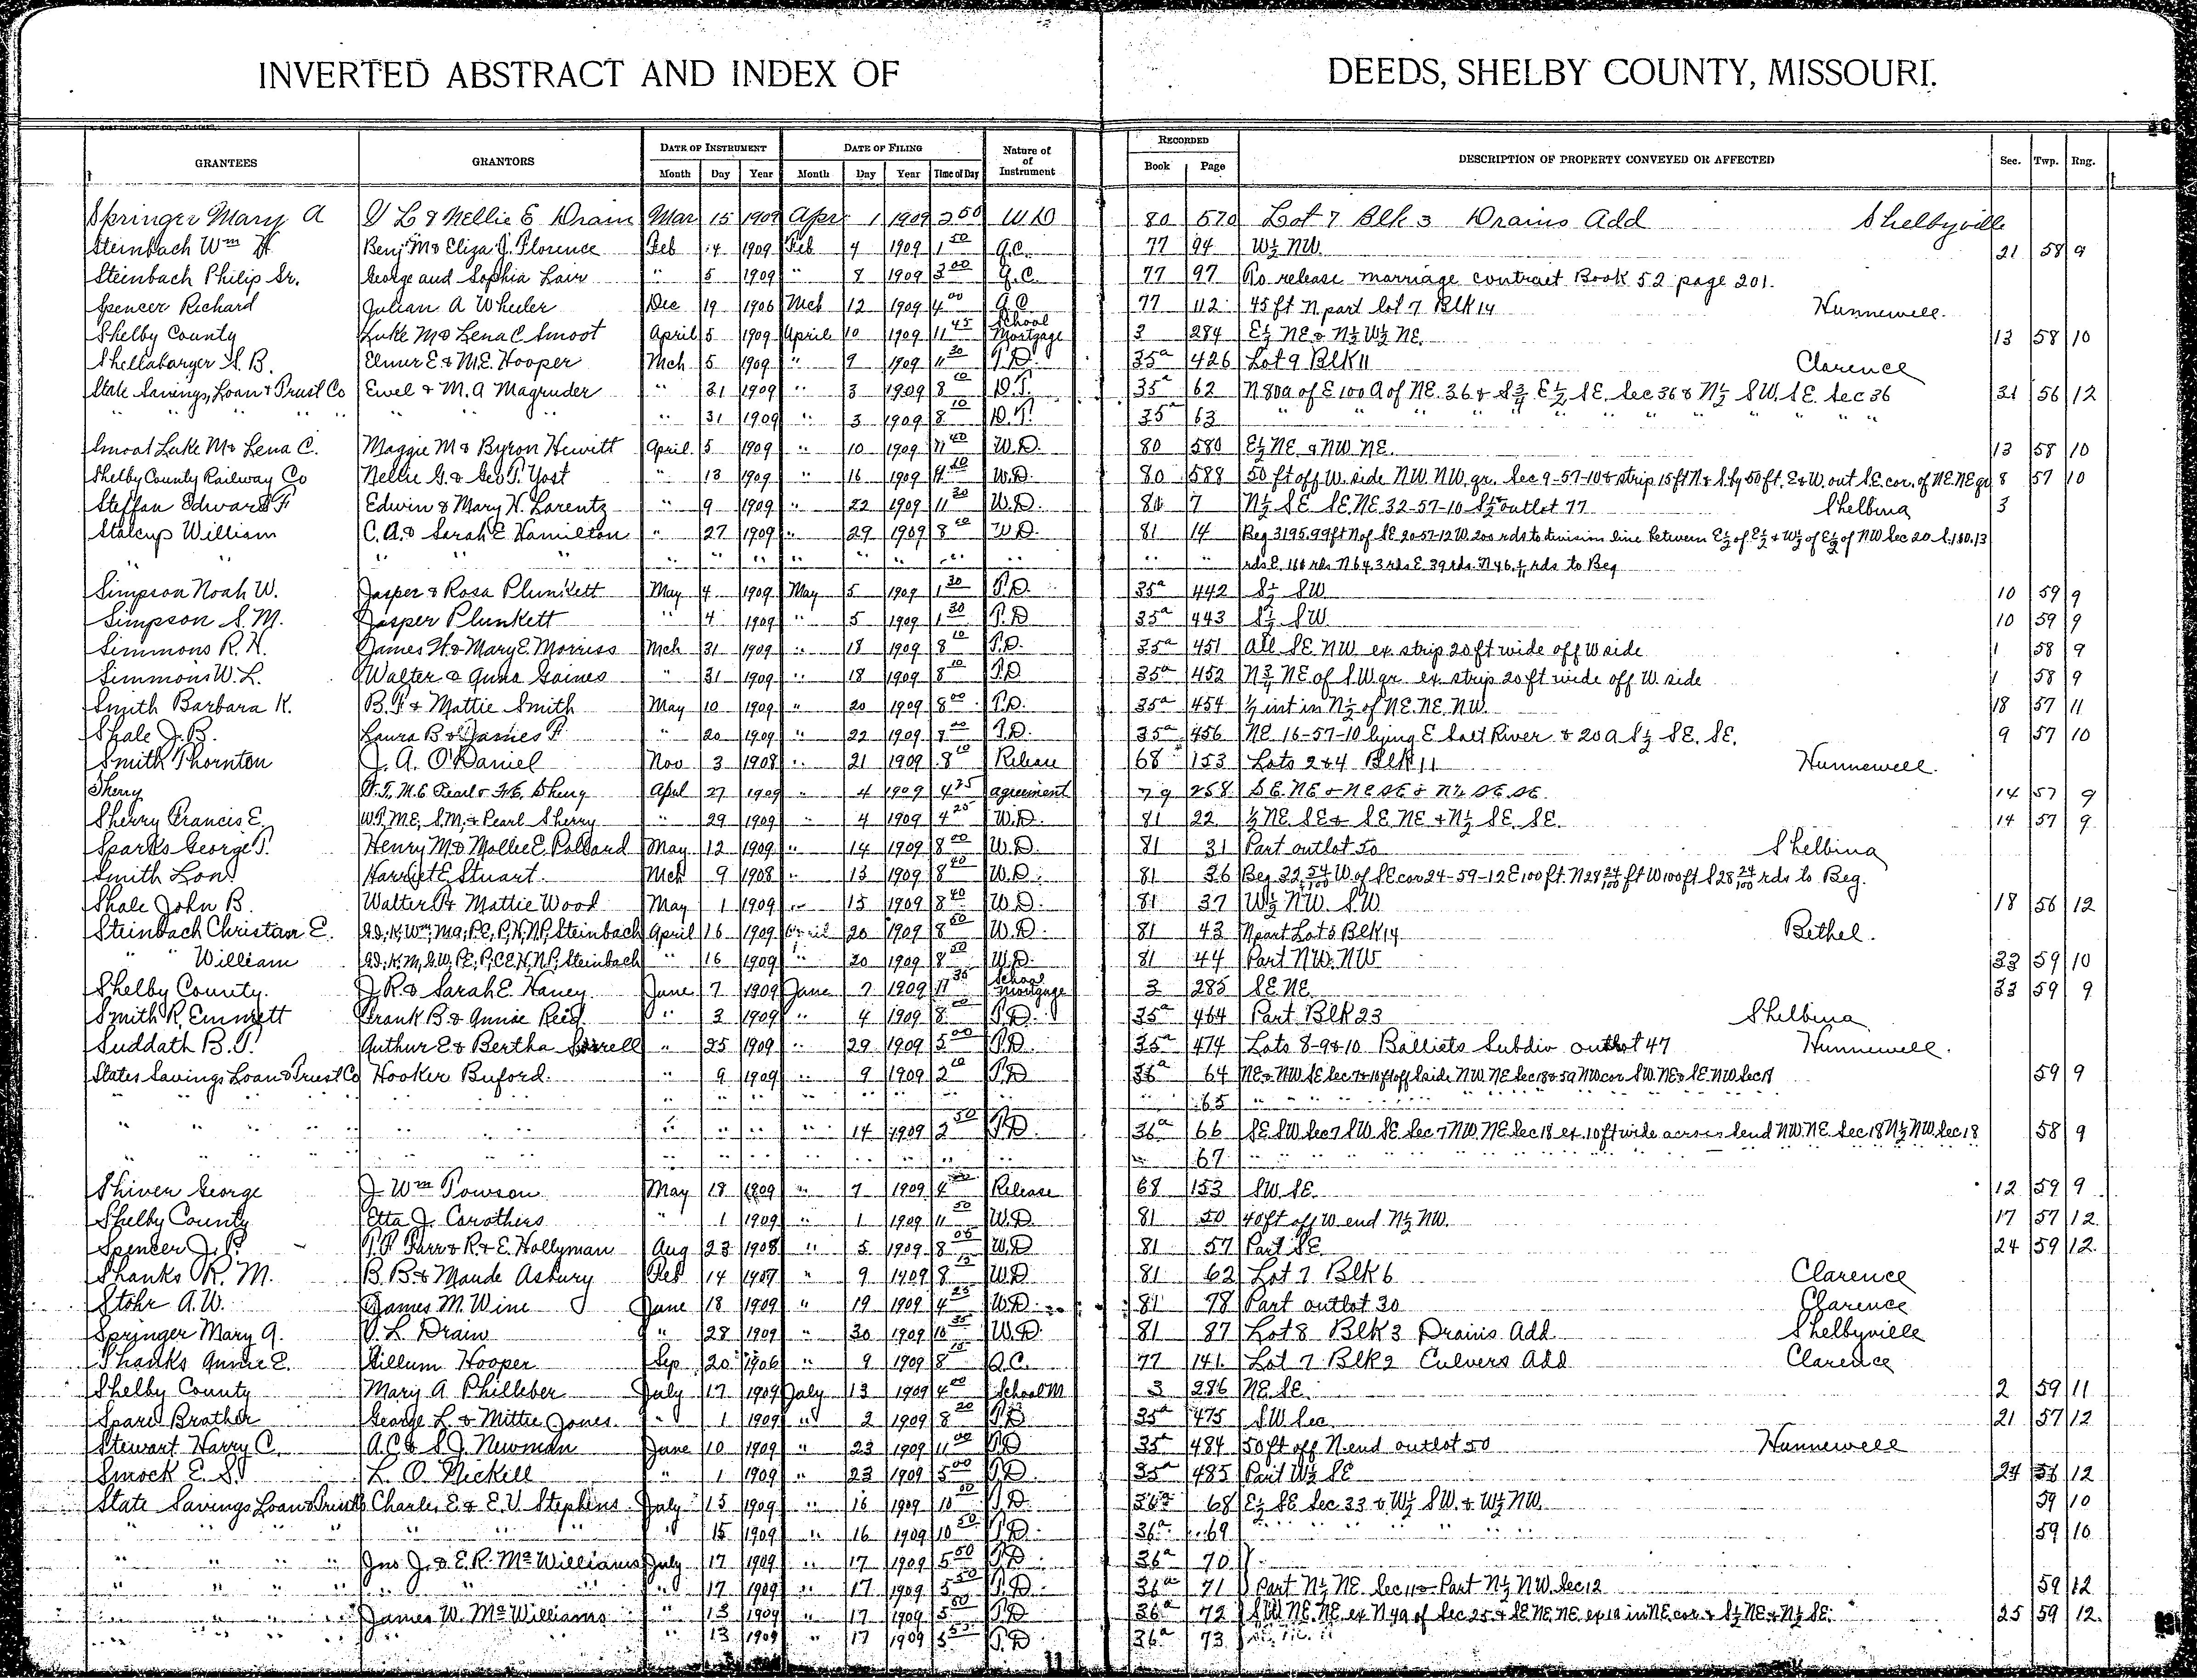 INVERTED ABSTRACT AND INDEX OF DEEDS, SHELBY COUNTY, MISSOURI.
GRANTEES GRANTORS DATE OF INSTRUMENT DATE OF FILING Nature of of Instrument RECORDED DESCRIPTION OF PROPERTY CONVEYED OR AFFECTED Sec. Twp. Rng.
Month Day Year Month Day Year Time of Day Book Page
Springer Mary A L & Nellie E Drain Mar 15 1909 Apr 1 1909 2 50 W D 80 570 Lot 7 Blk 3 Drains Add Shelbyville
Steinbach Wm H Benj M & Eliza J. Florence Feb 4 1909 Feb 4 1909 1 50 Q.C. 77 94 W½ NW. 21 58 9
Steinbach Philip Sr. George and Sophia Lair " 5 1909 " 8 1909 3 00 Q.C. 77 97 To release marriage contract Book 52 page 201.
Spencer Richard Julian A Wheeler Dec 19 1906 Mch 12 1909 4 00 Q.C 77 112 45 ft N part lot 7 Blk 14 Hunnewell.
Shelby County Luke M & Lena C Smoot April 5 1909 April 10 1909 11 45 School Mortgage 3 284 E½ NE & N½ W½ NE. 13 58 10
Shellabarger S. B. Elmer E & M.E. Hooper Mch 5 1909 " 9 1909 11 30 T.D. 35a 426 Lot 9 Blk 11 Clarence
State Savings, Loan & Trust Co Ewel & M. A Magruder " 31 1909 " 3 1909 8 10 D.T. 35a 62 N 80a of E 100 A of NE. 36 & S¾ E½ SE. Sec 36 & N½ SW. SE. Sec 36 31 56 12
" " " " " " " " 31 1909 " 3 1909 8 10 D.T. 35a 63 " " " " " "
Smoot Luke M & Lena C. Maggie M & Byron Hewitt April 5 1909 " 10 1909 11 40 W.D. 80 580 E½ NE. & NW NE. 13 58 10
Shelby County Railway Co Nellie G. & Geo T. Yost " 13 1909 " 16 1909 4 20 W.D. 80 588 50 ft off W. side NW NW. qr. Sec 9-57-10 & strip 15 ft N & S. by 50 ft. E & W. out SE. cor. of NE. NE qr 8 57 10
Steffan Edward F Edwin & Mary H. Lorentz " 9 1909 " 22 1909 11 30 W.D. 81 7 N½ SE SE. NE. 32-57-10 S½ outlot 77 Shelbina 3
Stalcup William C. A. & Sarah E Hamilton " 27 1909 " 29 1909 8 10 W D. 81 14 Beg 3195.99 ft N of SE 20-57-12 W. 200 rds to division line between E½ of E½ & W½ of E½ of NW Sec 20 S. 180.13
" " " " " " " " " " " " rds E. 160 rds N 64.3 rds E. 39 rds. N 46 rds to Beg
Simpson Noah W. Jasper & Rosa Plunkett May 4 1909 May 5 1909 1 30 T.D. 35a 442 S½ SW 10 59 9
Simpson S. M. Jasper Plunkett " 4 1909 " 5 1909 1 30 T.D 35a 443 S½ SW 10 59 9
Simmons R. H. James H & Mary E. Morriss Mch 31 1909 " 18 1909 8 10 T.D. 35a 451 All SE. NW ex. strip 20 ft wide off W side 1 58 9
Simmons W. L. Walter & Anna Gaines " 31 1909 " 18 1909 8 10 T.D 35a 452 N¾ NE of SW qr. ex. strip 20 ft wide off W. side 1 58 9
Smith Barbara K. B. F & Mattie Smith May 10 1909 " 20 1909 8 00 T.D. 35a 454 ½ int in N½ of NE. NE. NW. 18 57 11
Shale J. B. Laura B & James F. " 20 1909 " 22 1909 T.D. 35a 456 NE 16-57-10 lying E Salt River & 20 a S½ SE. SE. 9 57 10
Smith Thornton J. A. O'Daniel Nov 3 1908 " 21 1909 8 10 Release 68 153 Lots 2 & 4 Blk 11 Hunnewell.
Sherry W. T., M. E Pearl & F. E. Sherry April 27 1909 " 4 1909 4 25 agreement 79 258 S. E. NE & NE SE & N½ SE. SE. 14 57 9
Sherry Francis E. W. T, M. E, S. M, & Pearl Sherry " 29 1909 " 4 1909 4 25 W.D. 81 22 ½ NE. SE & SE. NE & N½ SE. SE. 14 57 9
Sparks George T. Henry M & Mollie E. Pollard May 12 1909 " 14 1909 8 00 W.D. 81 31 Part outlot 50 Shelbina
Smith Lon Harriet E Stuart. Mch 9 1908 " 13 1909 8 40 W.D. 81 36 Beg 32 54/100 W of SE cor 24-59-12 E 100 ft. N 28 24/100 ft W 100 ft S 28 24/100 rds to Beg.
Shale John B. Walter P & Mattie Wood May 1 1909 " 15 1909 8 40 W.D. 81 37 W½ NW. SW 18 56 12
Steinbach Christian E. Steinbach April 16 1909 April 20 1909 8 50 W.D. 81 43 N part Lot 8 Blk 14 Bethel.
" William Steinbach " 16 1909 " 20 1909 8 50 W.D. 81 44 Part NW. NW 33 59 10
Shelby County. J. R. & Sarah E. Haney. June 7 1909 June 7 1909 11 30 School mortgage 3 285 SE NE. 33 59 9
Smith R. Emmett Frank B & Annie Reid. " 3 1909 " 4 1909 8 00 T.D. 35a 464 Part Blk 23 Shelbina
Suddath B. T. Arthur E & Bertha Sorrell " 25 1909 " 29 1909 5 00 T.D. 35a 474 Lots 8-9 & 10 Balliets Subdiv outlot 47 Hunnewell.
States Savings Loan & Trust Co Hooker Buford. " 9 1909 " 9 1909 2 10 T.D 36a 64 NE & NW SE Sec 7 & 10 ft off S side NW. NE Sec 18 & 5a NW cor SW. NE & SE. NW Sec 18 59 9
" " " " " " " " " " " 65 " " " "
" " " " " " " " " " 14 1909 2 50 T.D. 36a 66 SE. SW Sec 7 SW SE. Sec 7 NW. NE Sec 18 ex. 10 ft wide across S end NW. NE. Sec 18 N½ NW. Sec 18 58 9
" " " " " " " " " " " 67 " " " "
Shiver George J. Wm Towson May 18 1909 " 7 1909 4 Release 68 153 SW SE. 12 59 9
Shelby County Etta J. Carothers " 1 1909 " 1 1909 11 50 W.D. 81 50 40 ft off W end N½ NW. 17 57 12
Spencer J. P. T. P. Parr & R & E. Hollyman Aug 23 1908 " 5 1909 8 05 W.D 81 57 Part SE 24 59 12.
Shanks R. M. B. B & Maude Asbury Feb 14 1907 " 9 1909 8 15 W.D 81 62 Lot 7 Blk 6 Clarence
Stohr A. W. James M. Wine June 18 1909 " 19 1909 4 25 W.D. 81 78 Part outlot 30 Clarence
Springer Mary A. L Drain " 28 1909 " 30 1909 10 35 W.D. 81 87 Lot 8 Blk 3 Drains Add Shelbyville
Shanks Annie E. Gillum Hooper Sep 20 1906 " 9 1909 8 15 Q.C. 77 141 Lot 7 Blk 2 Culvers Add Clarence
Shelby County Mary A Philleber July 17 1909 July 13 1909 4 00 School M 3 286 NE. SE. 2 59 11
Spare Brather George L. & Mittie Jones. " 1 1909 " 2 1909 8 20 T.D 35a 475 SW Sec. 21 57 12
Stewart Harry C. A. C & S. J. Newman June 10 1909 " 23 1909 11 00 T.D 35a 484 50 ft off N. end outlot 50 Hunnewell
Smock E. S. L. O. Nickell " 1 1909 " 23 1909 5 00 T.D. 35a 485 Part W½ SE 24 56 12
State Savings Loan & Trust Co Charles E & E. V. Stephens July 15 1909 " 16 1909 10 50 T.D. 36a 68 E½ SE Sec 33 & W½ SW. & W½ NW. 59 10
" " " " " " " 15 1909 " 16 1909 10 50 T.D. 36a 69 " " " " 59 10
" " " " Jno J. & E. R. McWilliams July 17 1909 " 17 1909 5 50 T.D. 36a 70
" " " " " " " 17 1909 " 17 1909 5 50 T.D. 36a 71 Part N½ NE. Sec 11 & Part N½ NW. Sec 12 59 12
" " " " James W. McWilliams " 13 1909 " 17 1909 5 50 T.D 36a 72 SW NE. NE. ex N 4a of Sec 25 & SE NE. NE. ex 1a in NE. cor. & S½ NE & N½ SE. 25 59 12.
" " " " " 13 1909 " 17 1909 5 55 T.D 36a 73